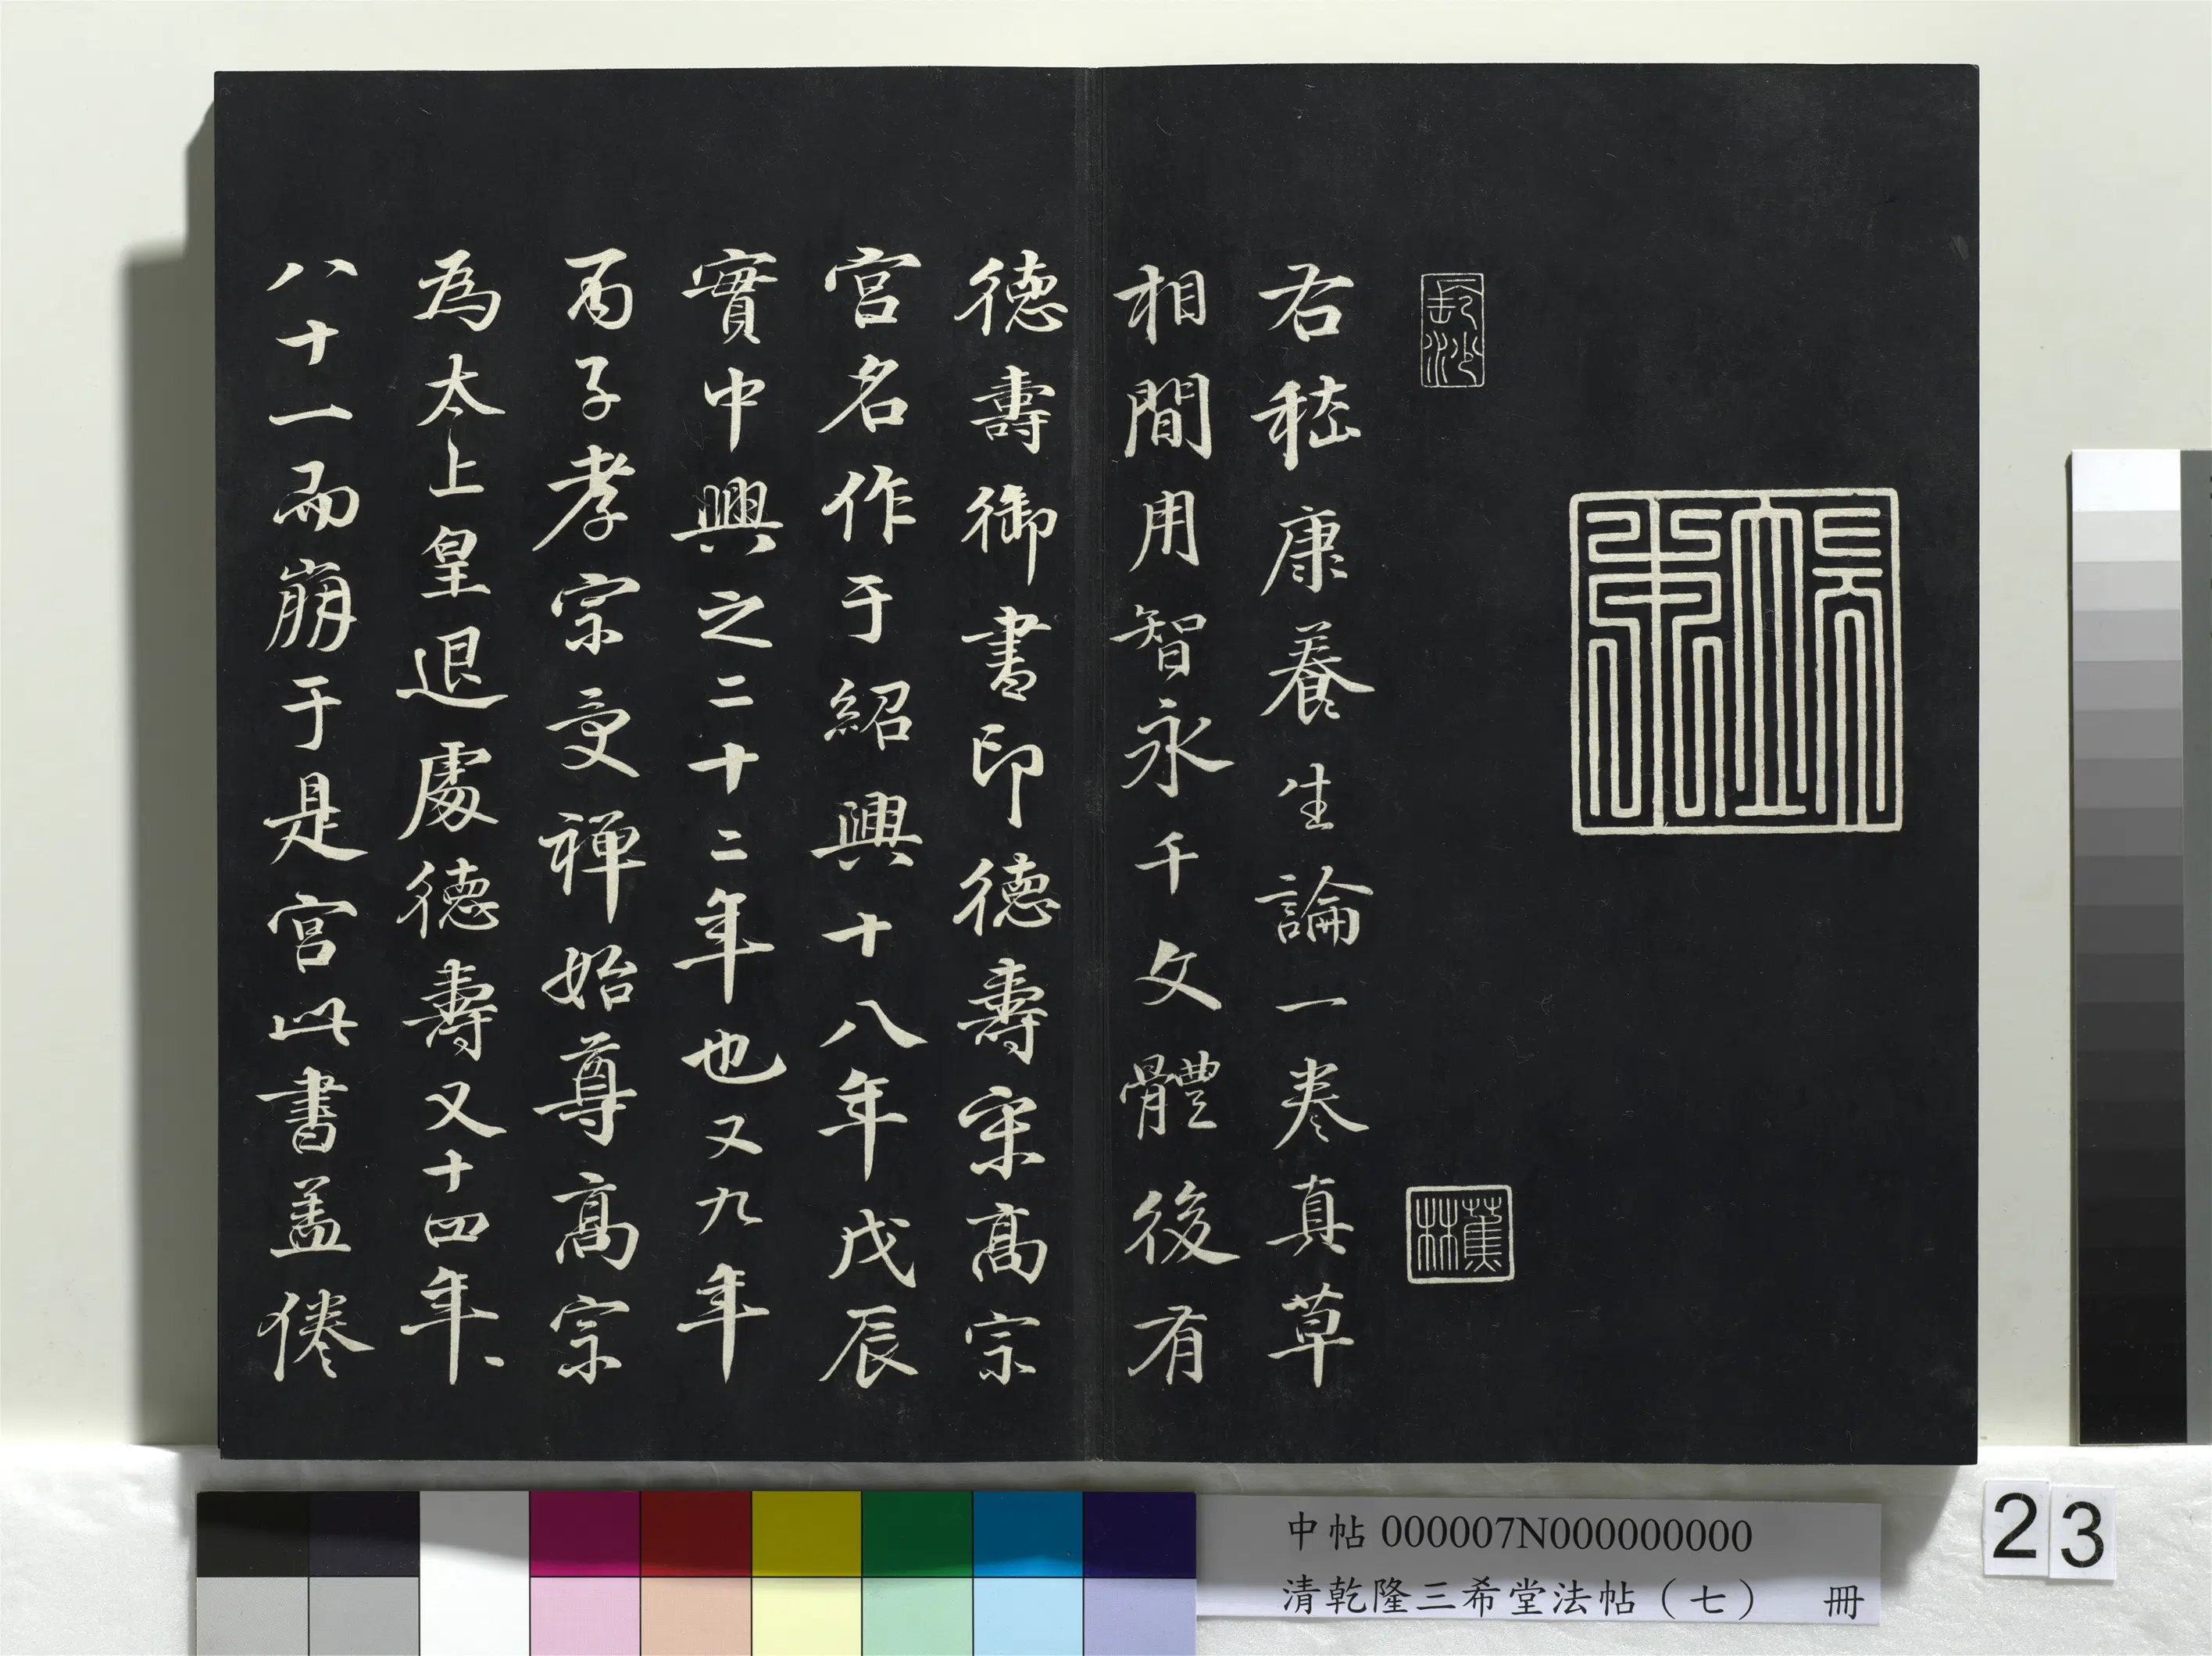 蕉林
右嵇康養生論一卷真草
相間用智永千文體後有
德壽御書印德壽宋高宗
宫名作于紹興十八年戊辰
實中興之二十二年也又九年
丙子孝宗受禪始尊高宗
為太上皇退處德壽又十四年
八十一而崩于是宫此書盖倦
中帖 000007N000000000
清乾隆三希堂法帖（七） 冊
23